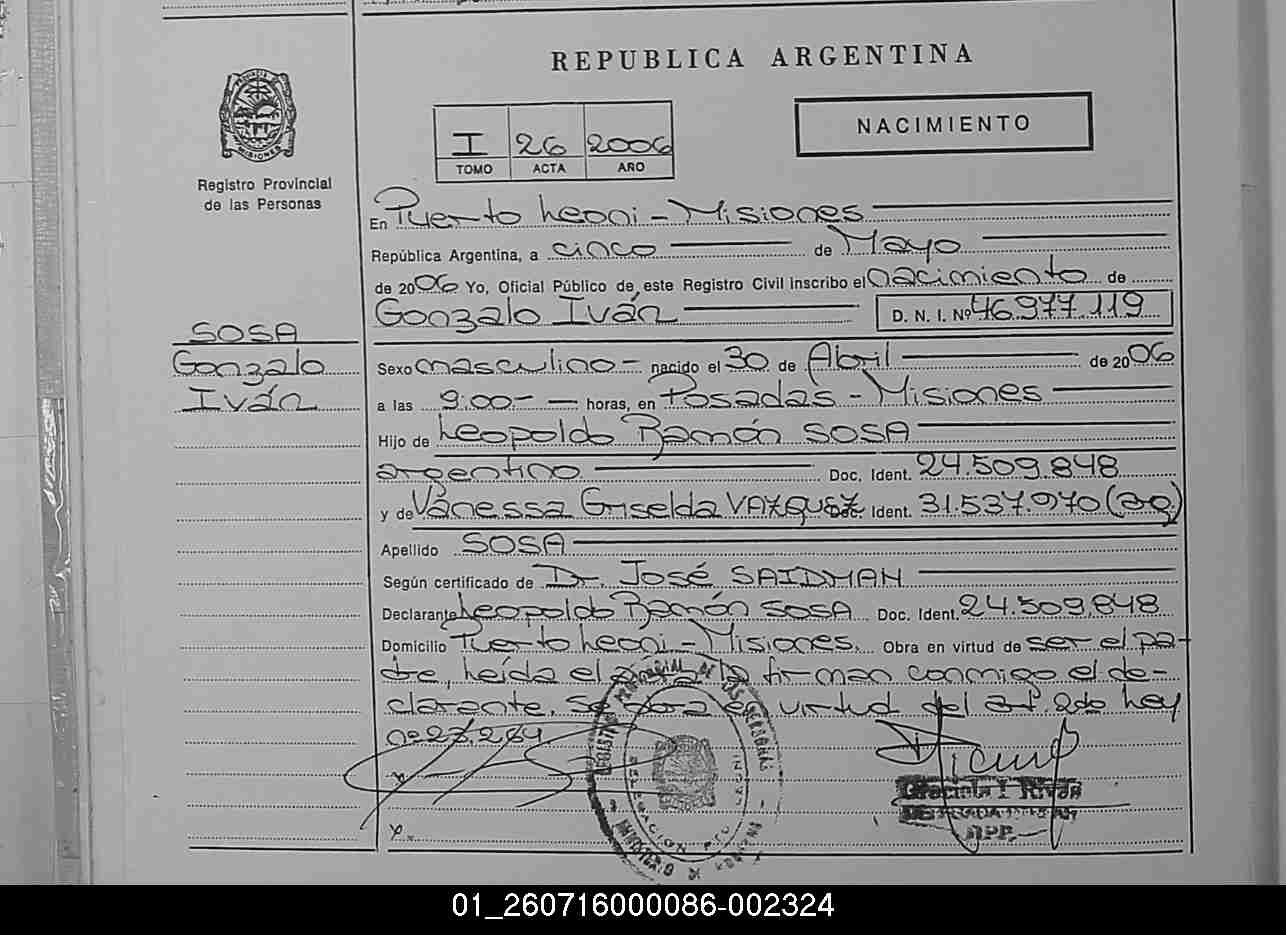 REPUBLICA ARGENTINA
PROVINCIA DE
MISIONES
Registro Provincial
de las Personas
I 26 2006
TOMO ACTA AÑO
NACIMIENTO
En Puerto Leoni - Misiones
República Argentina, a cinco de Mayo
de 2006 Yo, Oficial Público de este Registro Civil inscribo el nacimiento de
Gonzalo Iván D. N. I. Nº 46.977.119
SOSA
Gonzalo
Iván
Sexo masculino - nacido el 30 de Abril de 2006
a las 9:00- horas, en Posadas - Misiones
Hijo de Leopoldo Ramón SOSA
argentino Doc. Ident. 24.509.848
y de Vanessa Griselda VAZQUEZ Doc. Ident. 31.537.970 (arg)
Apellido SOSA
Según certificado de Dr. José SAIDMAN
Declarante Leopoldo Ramón SOSA Doc. Ident. 24.509.848
Domicilio Puerto Leoni - Misiones. Obra en virtud de ser el pa-
dre, Leída el acta la firman conmigo el de-
clarante. Se obra en virtud del art. 2do Ley
nº 27.284
REGISTRO PROVINCIAL DE LAS PERSONAS
DELEGACION PTO
MINISTERIO DE
Graciela I. Rivas
01_260716000086-002324